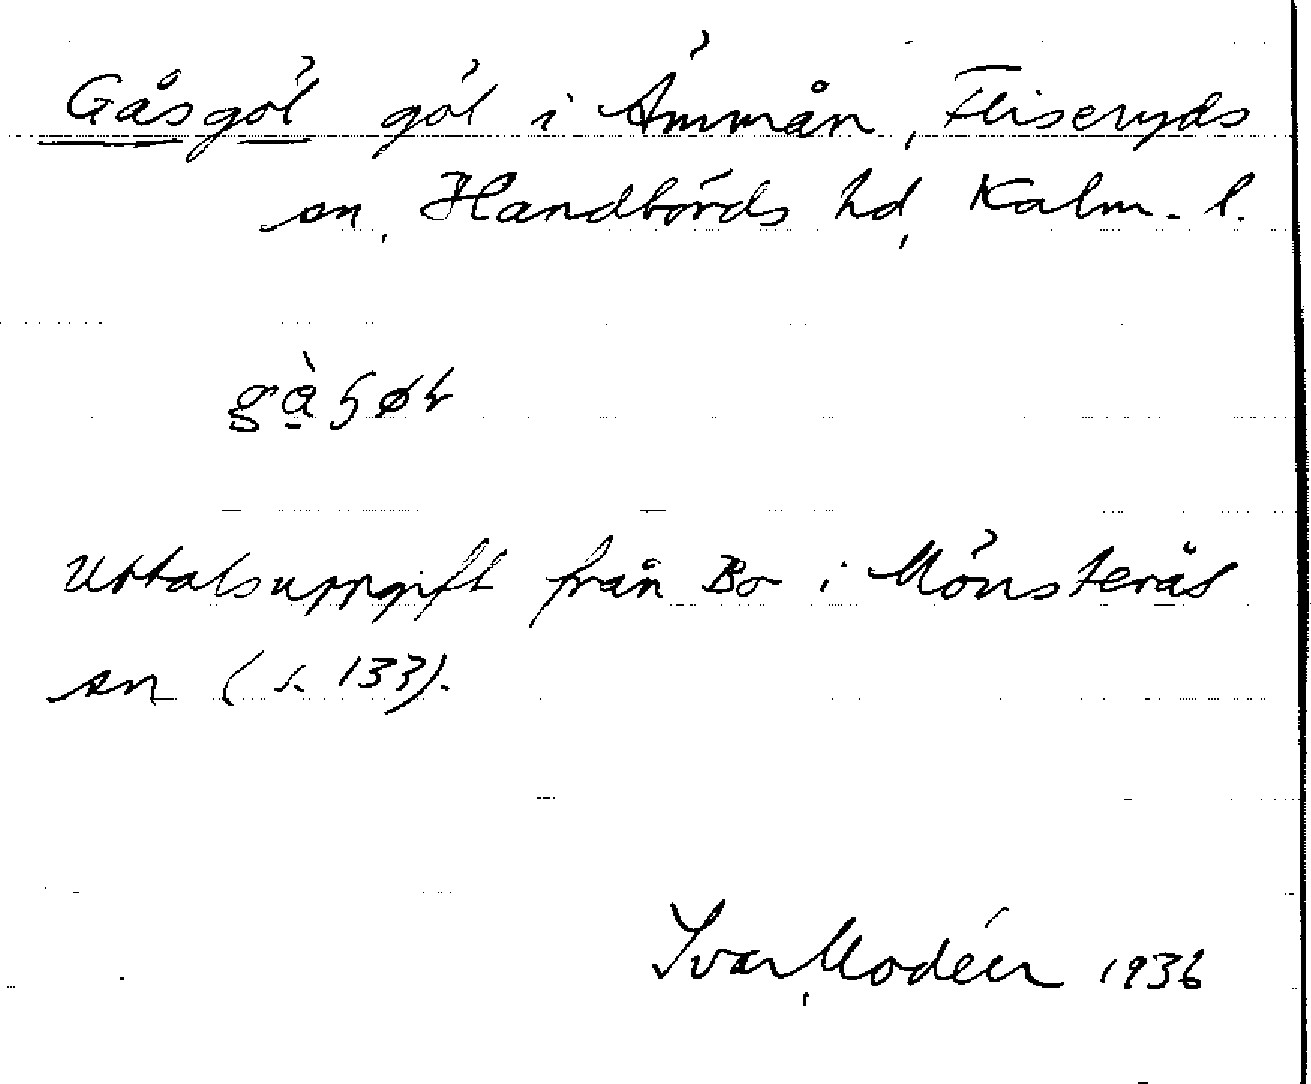 Gåsgöl göl i Ämmån, Fliseryds
sn, Handbörds hd, Kalm. l.
Uttalsuppgift från Bo i Mönsterås
sn (s. 133).
Ivar Modéer 1936